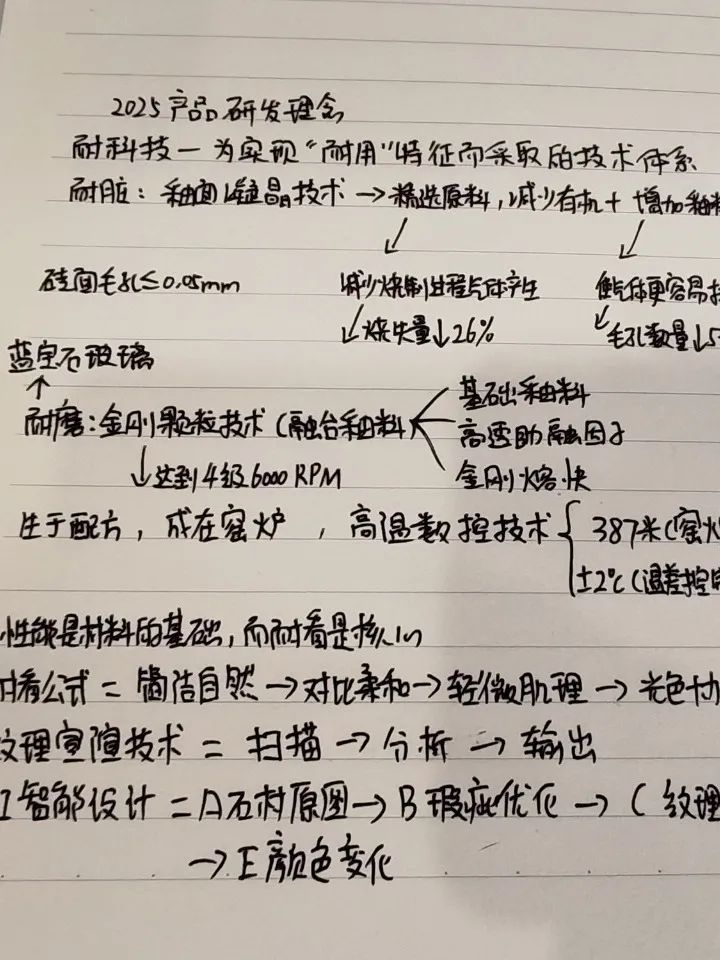 2025产品研发理念
耐科技—为实现"耐用"特征而采取的技术体系
耐脏：釉面缝晶技术→精选原料，减少有机+增加釉料
硅面毛孔≤0.05mm 减少烧制过程气体产生 使气体更容易
↓烧失量↓26% 毛孔数量↓5
蓝宝石玻璃
↑ 基础釉料
耐磨：金刚颗粒技术（融合釉料） 高透助融因子
↓达到4级6000RPM 金刚熔块
生于配方，成在窑炉，高温数控技术 387米（窑炉
±2℃（温差控
性能是材料的基础，而耐看是核心
耐看公式=简洁自然→对比柔和→轻微肌理→光色协
纹理宣渲技术=扫描→分析→输出
I智能设计=A石材原图→B瑕疵优化→C纹理
→E颜色变化